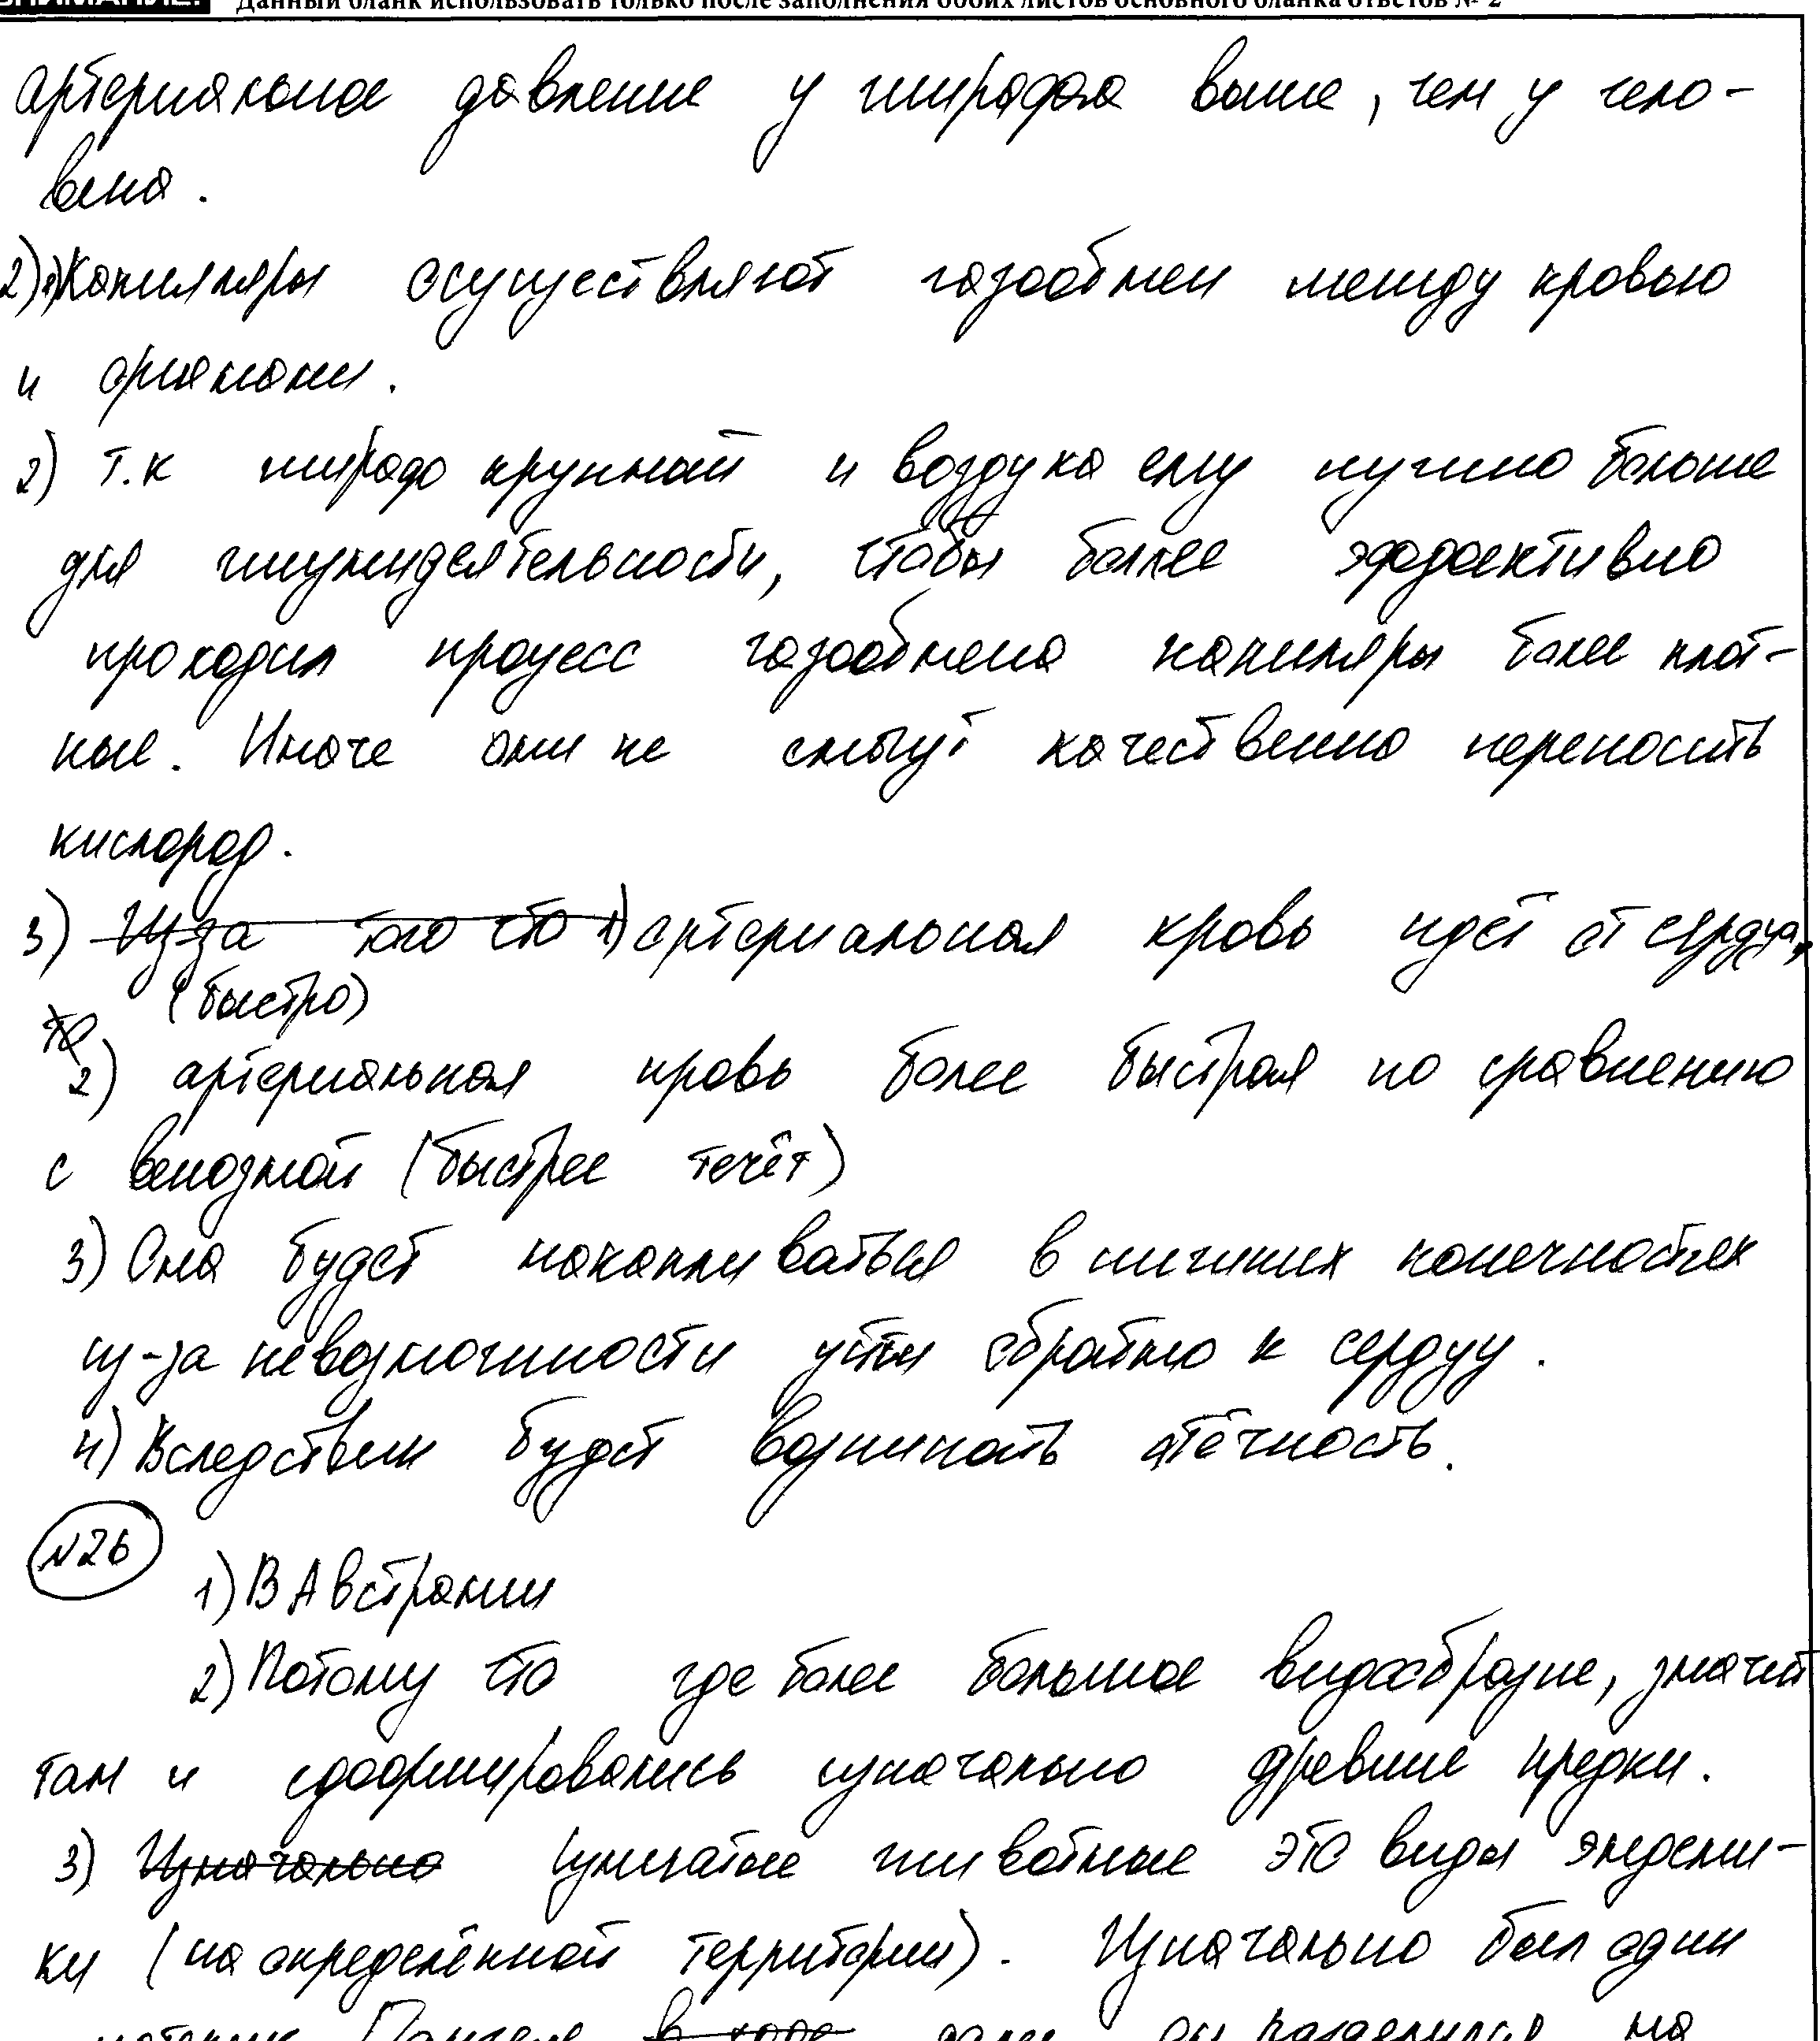 ВНИМАНИЕ! Данный бланк использовать только после заполнения обоих листов основного бланка ответов № 2
артериальное давление у жирафа выше, чем у чело-
века.
2) 1) Капилляры осуществляют газообмен между кровью
и органами.
2) т.к жираф крупный и воздуха ему нужно больше
для жизнидеятельности, чтобы более эффективно
проходил процесс газообмена капиляры более плот-
ные. Иначе они не смогут качественно переносить
кислород.
3) Из за того что 1) артериальная кровь идёт от сердца,
(быстро)
то
2) артериальная кровь более быстрая по сравнению
с венозной (быстрее течёт)
3) Она будет накапливаться в нижних конечностях
из-за невозможности уйти обратно к сердцу.
4) Вследствии будет возникать отёчность.
№26
1) В Австралии
2) Потому что где более большое видообразие, значит
там и сформировались изначально древние предки.
3) Изначально Сумчатые животные это виды эндеми-
ки (на определённой территории). Изначально был один
материк Пангея в ходе далее он разделился на